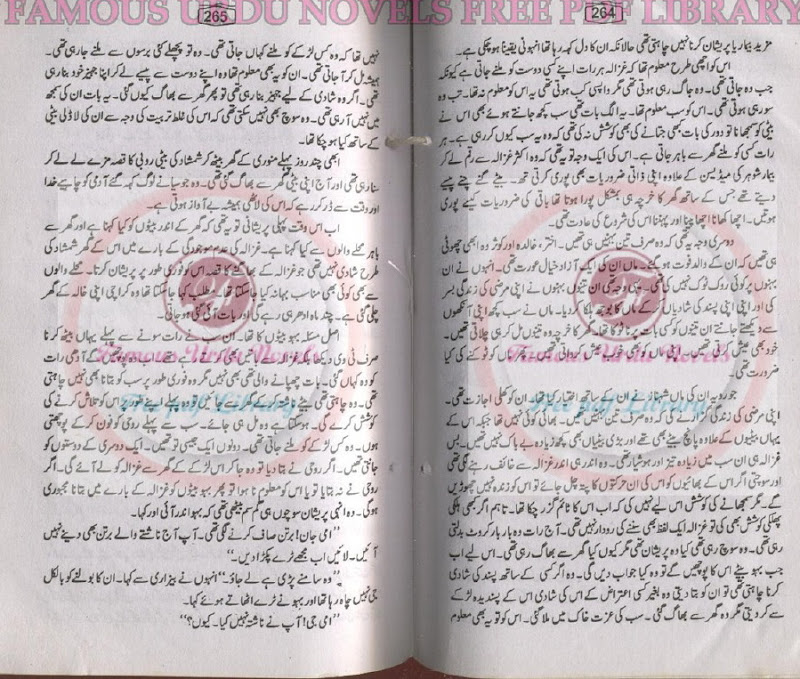 FAMOUS URDU NOVELS FREE PDF LIBRARY
264
مزید بیمار یا پریشان کرنا نہیں چاہتی تھی حالانکہ ان کا دل کہہ رہا تھا انہونی یقیناً ہو چکی ہے۔
اس کو اچھی طرح معلوم تھا کہ غزالہ ہر رات اپنے کسی دوست کو ملنے جاتی ہے کیونکہ
جب وہ جاتی تھی۔ وہ جاگ رہی ہوتی تھی مگر واپس کب ہوتی تھی یہ اس کو معلوم نہ تھا۔ تب وہ
سو رہی ہوتی تھی۔ اس کو سب معلوم تھا۔ یہ الگ بات تھی سب کچھ جانتے ہوئے بھی اس نے
بیٹی کو سمجھانا تو دور کی بات بھی جتانے کی بھی کوشش نہ کی تھی کہ وہ یہ سب کیوں کر رہی ہے۔ ہر
رات کسی کو ملنے گھر سے باہر جاتی ہے۔ اس کی ایک وجہ تو یہ تھی کہ وہ اکثر غزالہ سے رقم لے کر
بیمار شوہر کی میڈیسن کے علاوہ اپنی ذاتی ضروریات بھی پوری کرتی تھی۔ بیٹے گنے چنے پیسے
دیتے تھے جس کے ساتھ گھر کا خرچہ ہی بمشکل پورا ہوتا تھا باقی کی ضروریات کیسے پوری
ہوتیں۔ اچھا کھانا اچھا پینا اور پہننا اس کی شروع کی عادت تھی۔
دوسری وجہ یہ تھی کہ وہ صرف تین بہنیں ہی تھیں۔ اختر، خالدہ اور کوثر وہ ابھی چھوٹی
ہی تھیں کہ ان کے والد فوت ہو گئے۔ ماں ان کی ایک آزاد خیال عورت تھی۔ انہوں نے ان
بہنوں پر کوئی روک ٹوک نہیں کی تھی۔ یہی وجہ تھی ان تینوں بہنوں نے اپنی مرضی کی زندگی بسر
کی اور اپنی اپنی پسند کی شادیاں کی۔ ماں نے سب کچھ اپنی آنکھوں
سے دیکھتے جانتے ان تینوں کو کسی بات پر نہ ٹوکا تھا۔ گھر کا خرچہ وہ تینوں مل کر ہی چلاتی تھیں۔
خود بھی عیش کرتی تھیں۔ اپنی ماں کو بھی خوب عیش کرواتی تھیں۔ پھر ماں کو ٹوکنے کی کیا
ضرورت تھی۔
جو رویہ ان کی ماں شہناز نے ان کے ساتھ اختیار کیا تھا۔ ان کو کھلی اجازت تھی۔
اپنی مرضی کی زندگی گزارنے کی۔ وہ صرف تین بہنیں تھیں۔ بھائی کوئی نہیں تھا جبکہ اس کے
یہاں بیٹیوں کے علاوہ پانچ بیٹے بھی تھے اور بڑی بیٹیاں بھی کچھ زیادہ بے باک نہیں تھیں۔ بس
غزالہ ہی ان سب میں زیادہ تیز اور ہوشیار تھی۔ وہ اندر ہی اندر غزالہ سے خائف رہنے لگی تھی
اور سوچتی اگر اس کے بھائیوں کو اس کی ان حرکتوں کا پتہ چل جائے تو اس کو زندہ نہیں چھوڑیں
گے۔ مگر سمجھانے کی کوشش اس لیے نہیں کی کہ اب اس کا ٹائم گزر چکا تھا۔ تاہم اگر کبھی ہلکی
پھلکی کوشش بھی کی تو غزالہ ایک لفظ بھی سننے کی روادار نہیں تھی۔ آج رات وہ بار بار کروٹ بدلتی
تھی۔ وہ سوچ رہی تھی کیا وہ پریشان تھی مگر کیوں کیا گھر سے بھاگ رہی تھی۔ اس لیے اب
جب بہو بیٹے اس کا پوچھیں گے تو وہ کیا جواب دیں گی۔ وہ اگر کسی کے ساتھ پسند کی شادی
کرنا چاہتی تھی تو ان کو بتا دیتی وہ بغیر کسی اعتراض کے اس کی شادی اس کے پسندیدہ لڑکے
سے کر دیتی مگر وہ گھر سے بھاگ گئی۔ سب کی عزت خاک میں ملا گئی۔ اس کو تو یہ بھی معلوم
265
نہیں تھا کہ وہ کس لڑکے کو ملنے کہاں جاتی تھی۔ وہ تو پچھلے کئی برسوں سے ملنے جا رہی تھی۔
ہمیشہ مل کر آ جاتی تھی۔ ان کو یہ بھی معلوم تھا وہ اپنے دوست سے پیسے لے کر اپنا جہیز خود بنا رہی
تھی۔ اگر وہ شادی کے لیے جہیز بنا رہی تھی تو پھر گھر سے بھاگ کیوں گئی۔ یہ بات ان کی سمجھ
میں نہیں آ رہی تھی۔ وہ سوچ بھی نہیں سکتی تھی کہ اس کی غلط تربیت کی وجہ سے ان کی لاڈلی بیٹی
کے ساتھ کیا ہو چکا تھا۔
ابھی چند روز پہلے منوری کے گھر بیٹھ کر شمشاد کی بیٹی روبی کا قصہ مزے لے لے کر
سنا رہی تھی اور آج اپنی بیٹی گھر سے بھاگ گئی تھی۔ وہ جو سیانے لوگ کہہ گئے آدمی کو چاہیے خدا
اور وقت سے ڈر کر رہے کہ اس کی لاٹھی ہمیشہ بے آواز ہوتی ہے۔
اب اس وقت پہلی پریشانی تو یہ تھی کہ گھر کے اندر بیٹوں کو کیا کہنا ہے اور گھر سے
باہر محلے والوں سے کیا کہنا ہے۔ غزالہ کی عدم موجودگی کے بارے میں اس کے گھر شمشاد کی
طرح شادی نہیں تھی جو غزالہ کے بھاگنے کا قصہ اس کو فوری طور پر پریشان کرتا۔ محلے والوں
سے بھی کوئی بھی مناسب بہانہ کیا جا سکتا تھا۔ مطلب کہا جا سکتا تھا وہ کراچی اپنی خالہ کے گھر
چلی گئی ہے۔ چند ماہ ادھر ہی رہے گی اور بات آئی گئی ہو جاتی۔
اصل مسئلہ بہو بیٹوں کا تھا۔ ان سب نے رات سونے سے پہلے یہاں بیٹھ کرنا
صرف ٹی وی دیکھا بلکہ غزالہ سے باتیں بھی کرتے رہے تھے۔ وہ سب پوچھیں گے آدھی رات
کو وہ کہاں گئی۔ بات چھپانے والی تھی بھی نہیں مگر وہ فوری طور پر سب کو بتانا بھی نہیں چاہتی
تھی۔ وہ چاہتی تھی بیٹے ناشتہ کر کے کام سے جائیں تو وہ پہلے اپنے طور پر اس کو تلاش کرنے کی
کوشش کرے گی۔ ہو سکتا ہے وہ مل ہی جائے۔ سب سے پہلے روحی کو فون کر کے پوچھتی
ہوں۔ وہ کس لڑکے کو ملنے جاتی تھی۔ دونوں ایک جیسی تو تھیں۔ ایک دوسری کے دوستوں کو
جانتی تھیں۔ اگر روحی نے بتا دیا تو وہ جا کر اس لڑکے کے گھر سے غزالہ کو لے آئے گی۔ اگر
روحی نے نہ بتایا تو یا اس کو معلوم نا ہوا تو پھر بہو بیٹوں کو غزالہ کے بارے میں بتانا مجبوری
ہوگی۔ وہ انہی پریشان سوچوں میں گم سم بیٹھی تھی کہ بہو اندر آئی اور کہا۔
”امی جان! برتن صاف کرنے لگی تھی۔ آپ آج ناشتے والے برتن بھی دینے نہیں
آئیں۔ لائیں اب مجھے ٹرے پکڑا دیں۔“
”وہ سامنے پڑی ہے لے جاؤ۔“ انہوں نے بیزاری سے کہا۔ ان کا بولنے کو بالکل
جی نہیں چاہ رہا تھا اور بہو نے ٹرے اٹھاتے ہوئے کہا۔
”امی جی! آپ نے ناشتہ نہیں کیا۔ کیوں؟“
Famous Urdu Novels
Free pdf Library
Famous Urdu Novels
Free pdf Library